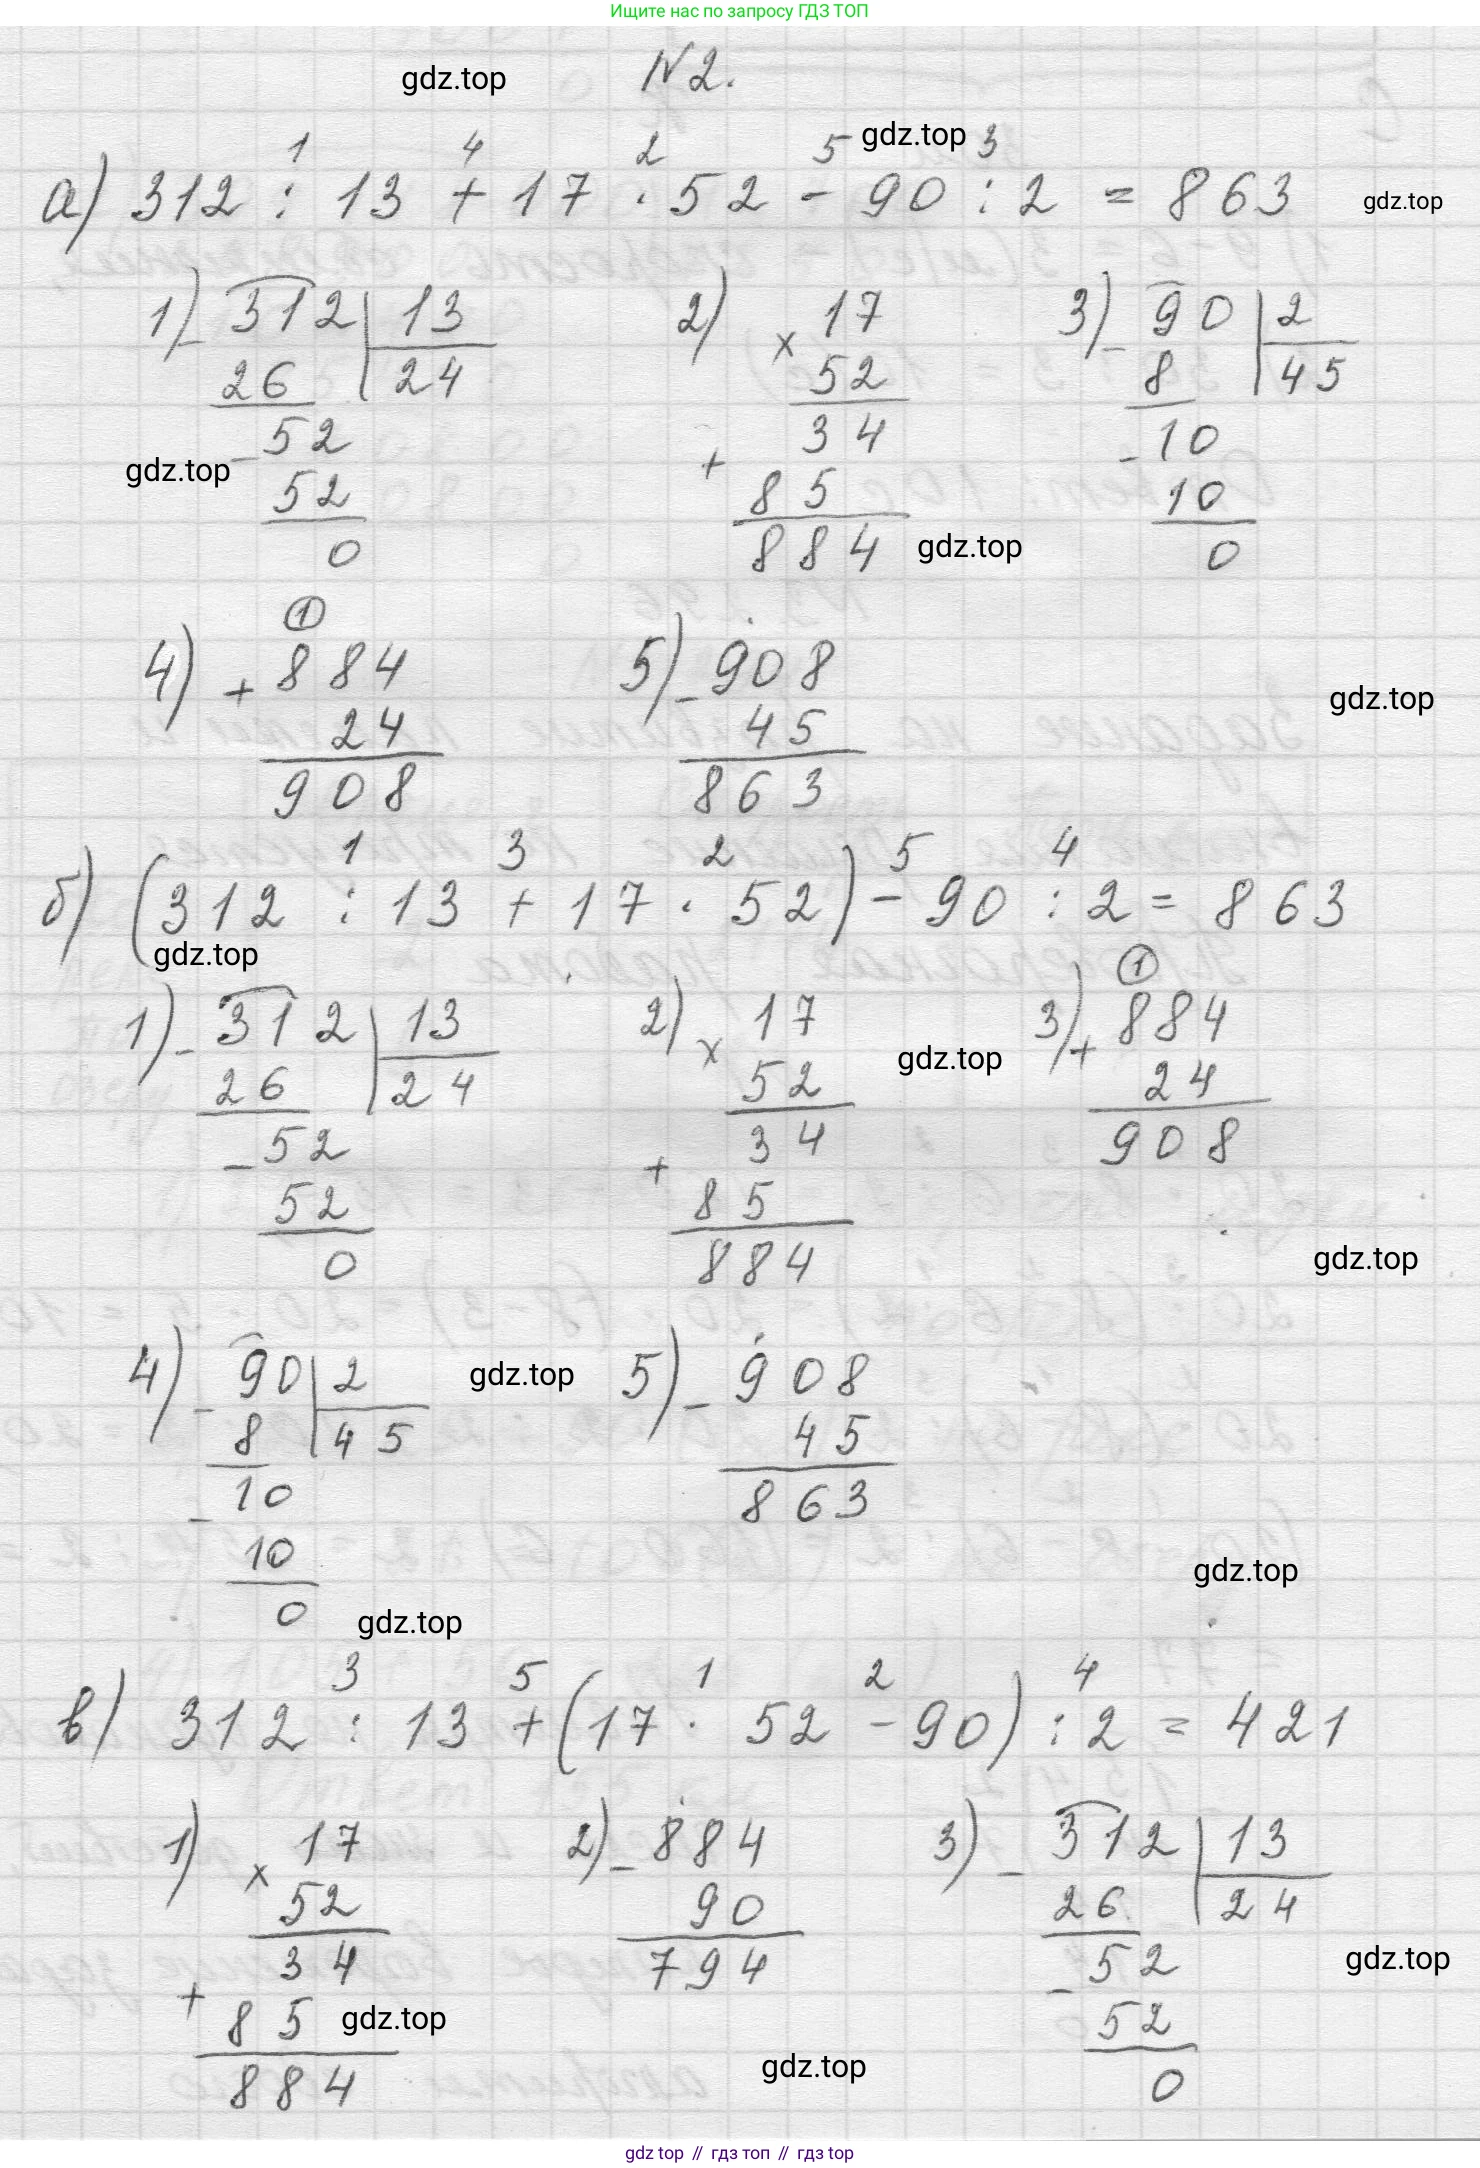 Ищите нас по запросу ГДЗ ТОП
gdz.top №2.
gdz.top
1 4 2 5 3
а) 312 : 13 + 17 · 52 - 90 : 2 = 863 gdz.top
1) - 312 | 13 2) × 17 3) - 90 | 2
26 | 24 52 8 | 45
- 52 34 - 10
gdz.top +
52 85 10
0 884 0
gdz.top
①
4) + 884 5) - 908
24 45
gdz.top
908 863
1 3 2 5 4
б) (312 : 13 + 17 · 52) - 90 : 2 = 863
gdz.top
①
1) - 312 | 13 2) × 17 3) + 884
gdz.top
26 | 24 52 24
- 52 34 908
52 + 85
0 884
gdz.top
4) - 90 | 2 gdz.top 5) - 908
8 | 45 45
- 10 863
10
gdz.top
0 gdz.top
3 5 1 2 4
в) 312 : 13 + (17 · 52 - 90) : 2 = 421
1) × 17 2) - 884 3) - 312 | 13
52 90 26 | 24
34 794 - 52
gdz.top
+ 85 gdz.top 52
884 gdz.top 0
gdz top // гдз топ // гдз top